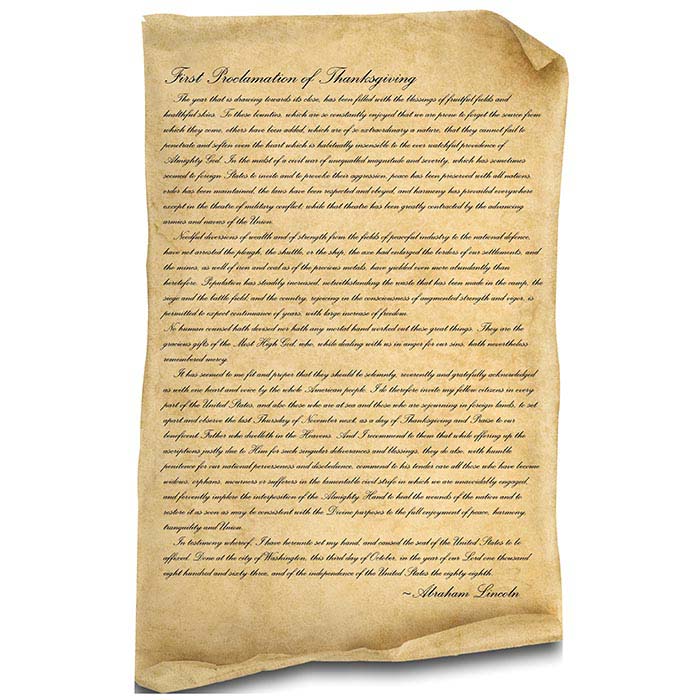 First Proclamation of Thanksgiving
The year that is drawing towards its close, has been filled with the blessings of fruitful fields and
healthful skies. To these bounties, which are so constantly enjoyed that we are prone to forget the source from
which they come, others have been added, which are of so extraordinary a nature, that they cannot fail to
penetrate and soften even the heart which is habitually insensible to the ever watchful providence of
Almighty God. In the midst of a civil war of unequalled magnitude and severity, which has sometimes
seemed to foreign States to invite and to provoke their aggression, peace has been preserved with all nations,
order has been maintained, the laws have been respected and obeyed, and harmony has prevailed everywhere
except in the theatre of military conflict; while that theatre has been greatly contracted by the advancing
armies and navies of the Union.
Needful diversions of wealth and of strength from the fields of peaceful industry to the national defence,
have not arrested the plough, the shuttle, or the ship; the axe had enlarged the borders of our settlements, and
the mines, as well of iron and coal as of the precious metals, have yielded even more abundantly than
heretofore. Population has steadily increased, notwithstanding the waste that has been made in the camp, the
siege and the battle field; and the country, rejoicing in the consciousness of augmented strength and vigor, is
permitted to expect continuance of years, with large increase of freedom.
No human counsel hath devised nor hath any mortal hand worked out these great things. They are the
gracious gifts of the Most High God, who, while dealing with us in anger for our sins, hath nevertheless
remembered mercy.
It has seemed to me fit and proper that they should be solemnly, reverently and gratefully acknowledged
as with one heart and voice by the whole American people. I do therefore invite my fellow citizens in every
part of the United States, and also those who are at sea and those who are sojourning in foreign lands, to set
apart and observe the last Thursday of November next, as a day of Thanksgiving and Praise to our
beneficent Father who dwelleth in the Heavens. And I recommend to them that while offering up the
ascriptions justly due to Him for such singular deliverances and blessings, they do also, with humble
penitence for our national perverseness and disobedience, commend to his tender care all those who have become
widows, orphans, mourners or sufferers in the lamentable civil strife in which we are unavoidably engaged,
and fervently implore the interposition of the Almighty Hand to heal the wounds of the nation and to
restore it as soon as may be consistent with the Divine purposes to the full enjoyment of peace, harmony,
tranquility and Union.
In testimony whereof, I have hereunto set my hand, and caused the seal of the United States to be
affixed. Done at the city of Washington, this third day of October, in the year of our Lord one thousand
eight hundred and sixty-three, and of the independence of the United States the eighty-eighth.
~Abraham Lincoln